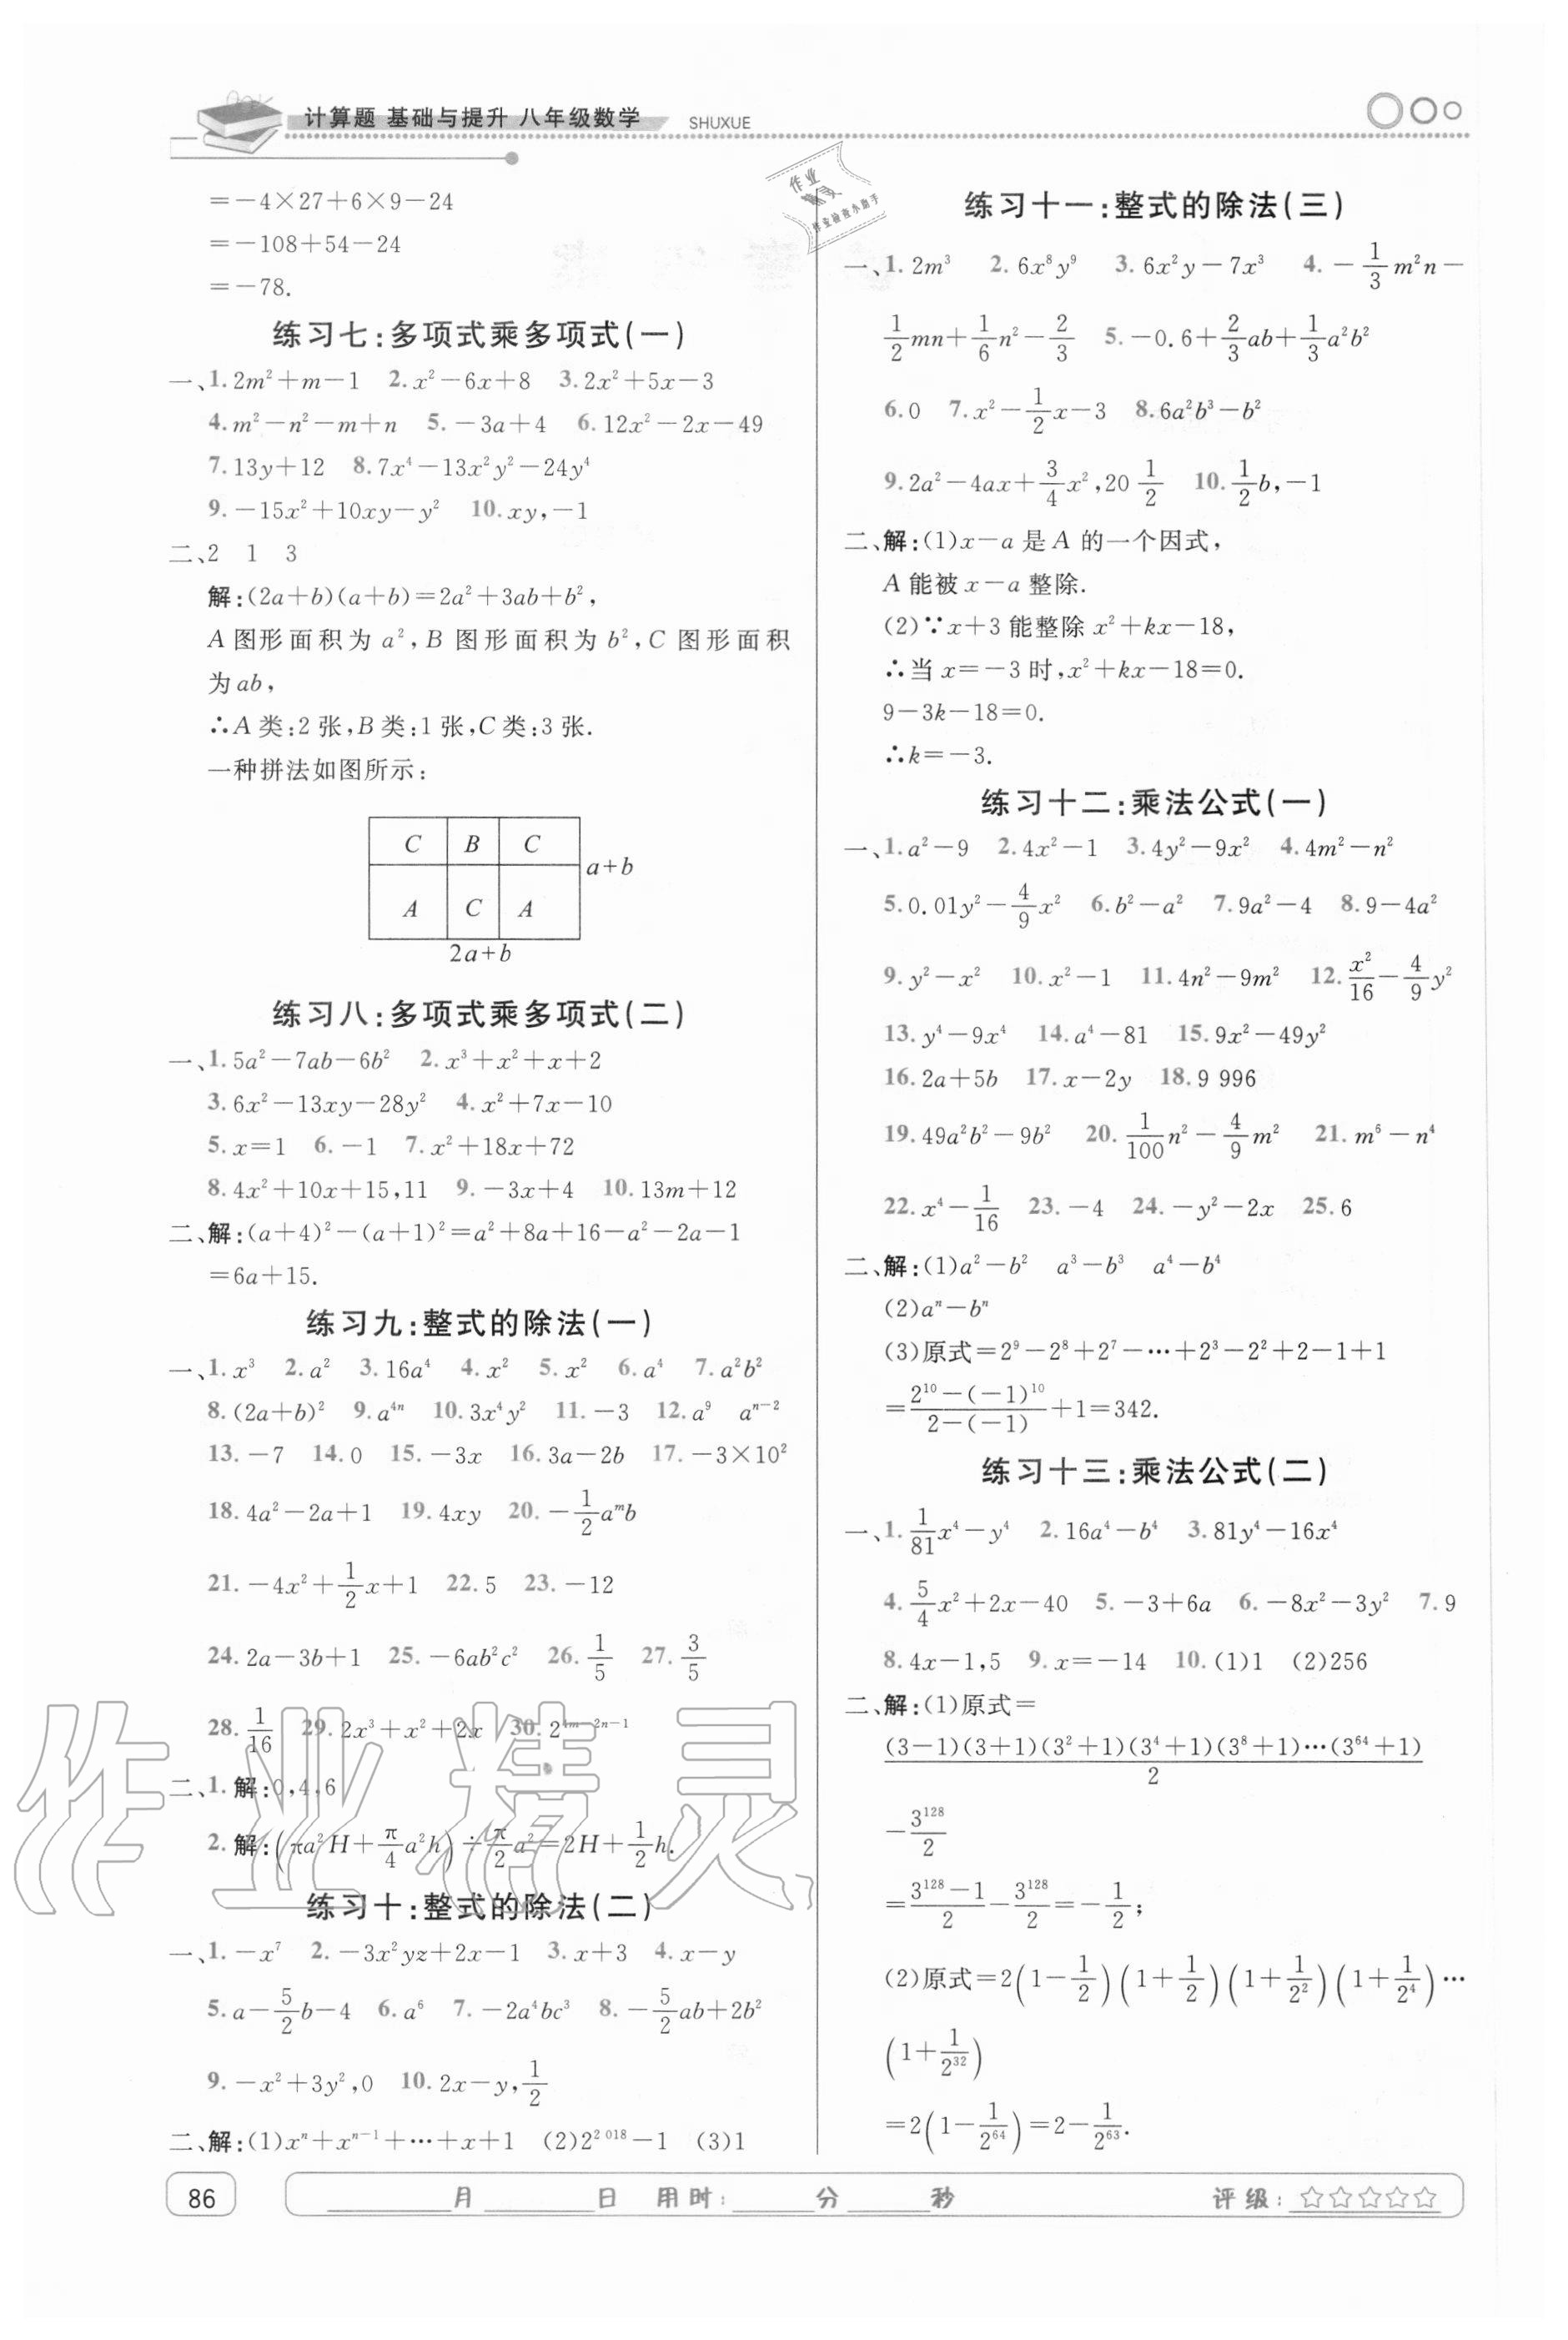 计算题 基础与提升 八年级数学 SHUXUE
=-4×27+6×9-24
=-108+54-24
=-78.
练习七:多项式乘多项式(一)
一、1.2m²+m-1 2.x²-6x+8 3.2x²+5x-3
4.m²-n²-m+n 5.-3a+4 6.12x²-2x-49
7.13y+12 8.7x⁴-13x²y²-24y⁴
9.-15x²+10xy-y² 10.xy,-1
二、2 1 3
解:(2a+b)(a+b)=2a²+3ab+b²,
A图形面积为a²,B图形面积为b²,C图形面积
为ab,
∴A类:2张,B类:1张,C类:3张.
一种拼法如图所示:
C B C
a+b
A C A
2a+b
练习八:多项式乘多项式(二)
一、1.5a²-7ab-6b² 2.x³+x²+x+2
3.6x²-13xy-28y² 4.x²+7x-10
5.x=1 6.-1 7.x²+18x+72
8.4x²+10x+15,11 9.-3x+4 10.13m+12
二、解:(a+4)²-(a+1)²=a²+8a+16-a²-2a-1
=6a+15.
练习九:整式的除法(一)
一、1.x³ 2.a² 3.16a⁴ 4.x² 5.x² 6.a⁴ 7.a²b²
8.(2a+b)² 9.a⁴ⁿ 10.3x⁴y² 11.-3 12.a⁹ aⁿ⁻²
13.-7 14.0 15.-3x 16.3a-2b 17.-3×10²
18.4a²-2a+1 19.4xy 20.-1/2aᵐb
21.-4x²+1/2x+1 22.5 23.-12
24.2a-3b+1 25.-6ab²c² 26.1/5 27.3/5
28.1/16 29.2x³+x²+2x 30.2^(4m-2n-1)
二、1.解:0,4,6
2.解:(πa²H+π/4a²h)÷π/2a²=2H+1/2h.
练习十:整式的除法(二)
一、1.-x⁷ 2.-3x²yz+2x-1 3.x+3 4.x-y
5.a-5/2b-4 6.a⁶ 7.-2a⁴bc³ 8.-5/2ab+2b²
9.-x²+3y²,0 10.2x-y,1/2
二、解:(1)xⁿ+xⁿ⁻¹+…+x+1 (2)2^(2 018)-1 (3)1
练习十一:整式的除法(三)
一、1.2m³ 2.6x⁸y⁹ 3.6x²y-7x³ 4.-1/3m²n-
1/2mn+1/6n²-2/3 5.-0.6+2/3ab+1/3a²b²
6.0 7.x²-1/2x-3 8.6a²b³-b²
9.2a²-4ax+3/4x²,20 1/2 10.1/2b,-1
二、解:(1)x-a是A的一个因式,
A能被x-a整除.
(2)∵x+3能整除x²+kx-18,
∴当x=-3时,x²+kx-18=0.
9-3k-18=0.
∴k=-3.
练习十二:乘法公式(一)
一、1.a²-9 2.4x²-1 3.4y²-9x² 4.4m²-n²
5.0.01y²-4/9x² 6.b²-a² 7.9a²-4 8.9-4a²
9.y²-x² 10.x²-1 11.4n²-9m² 12.x²/16-4/9y²
13.y⁴-9x⁴ 14.a⁴-81 15.9x²-49y²
16.2a+5b 17.x-2y 18.9 996
19.49a²b²-9b² 20.1/100n²-4/9m² 21.m⁶-n⁴
22.x⁴-1/16 23.-4 24.-y²-2x 25.6
二、解:(1)a²-b² a³-b³ a⁴-b⁴
(2)aⁿ-bⁿ
(3)原式=2⁹-2⁸+2⁷-…+2³-2²+2-1+1
=(2¹⁰-(-1)¹⁰)/(2-(-1))+1=342.
练习十三:乘法公式(二)
一、1.1/81x⁴-y⁴ 2.16a⁴-b⁴ 3.81y⁴-16x⁴
4.5/4x²+2x-40 5.-3+6a 6.-8x²-3y² 7.9
8.4x-1,5 9.x=-14 10.(1)1 (2)256
二、解:(1)原式=
(3-1)(3+1)(3²+1)(3⁴+1)(3⁸+1)…(3⁶⁴+1)/2
-3¹²⁸/2
=(3¹²⁸-1)/2-3¹²⁸/2=-1/2;
(2)原式=2(1-1/2)(1+1/2)(1+1/2²)(1+1/2⁴)…
(1+1/2³²)
=2(1-1/2⁶⁴)=2-1/2⁶³.
86
月 日 用时: 分 秒 评级:☆☆☆☆☆
作业精灵
作业
作业检查小助手